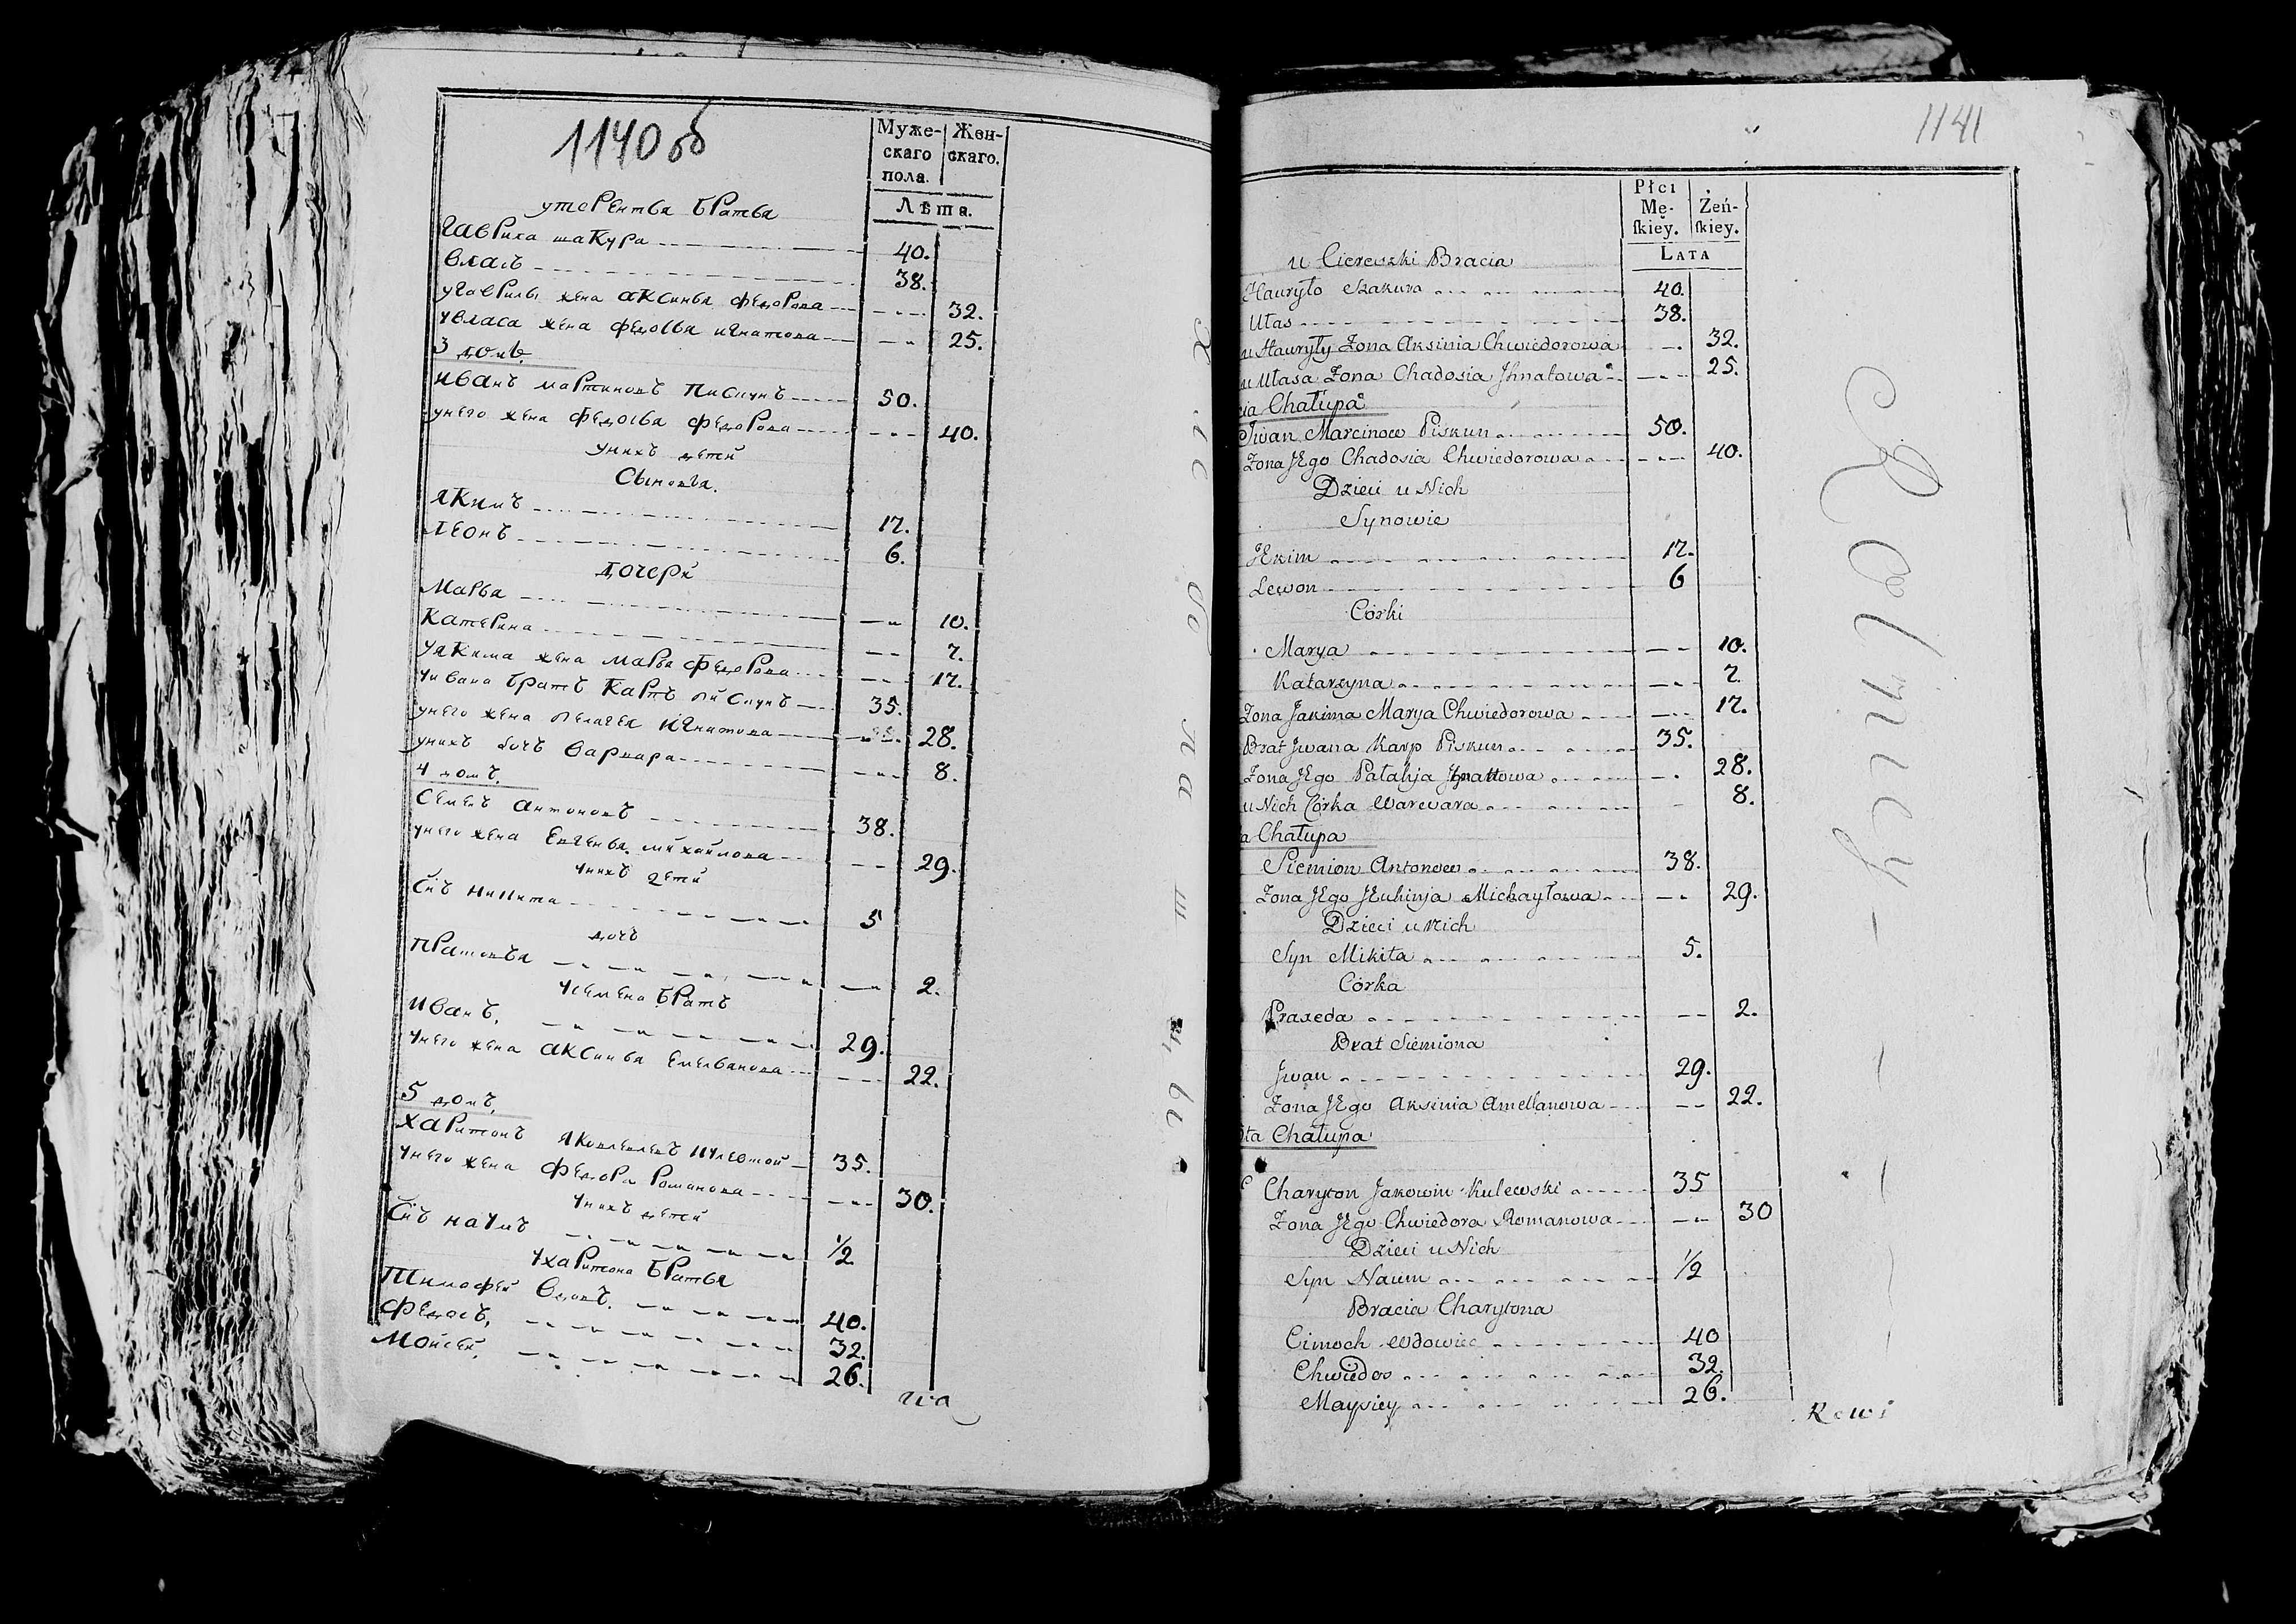 1140 об
Муже-
скаго
пола.
Жен-
скаго.
Лѣта.
утерентья братья
Гаврила шакура 40.
Власъ 38.
угаврилы жена аксинья федорова 32.
увласа жена федосья игнатова 25.
3 домъ.
иванъ мартиновъ пискунъ 50.
унего жена федосья федорова 40.
унихъ детей
Сыновья.
якимъ 17.
леонъ 6.
дочери
Марья 10.
Катерина 7.
уякима жена марья федорова 17.
уивана братъ карпъ пискунъ 35.
унего жена пелагея игнатова 28.
унихъ дочь варвара 8.
4 домъ.
Семенъ антоновъ 38.
унего жена евгенья михайлова 29.
унихъ детей
Снъ никита 5
дочь
прасковья 2.
усемена братъ
иванъ. 29.
унего жена аксинья емельянова 22.
5 домъ.
харитонъ яковлевъ 35.
унего жена федора романова 30.
унихъ детей
Снъ наумъ 1/2
ухаритона братья
Тимофей вдовъ. 40.
федосъ. 32.
Мойсей. 26.
1141
Płci
Mę-
ſkiey.
Żeń-
ſkiey.
LATA
u Ciereszki Bracia
Hauryło Szakura 40.
Ułas 38.
u Hauryły Zona Aksinia Chwiedorowa 32.
u Ułasa Zona Chadosia Jhnatowa 25.
cia Chałupa
Jwan Marcinow Piskun 50.
Zona JEgo Chadosia Chwiedorowa 40.
Dzieci u Nich
Synowie
JEkim 17.
Lewon 6
Córki
Marya 10.
Katarzyna 7.
Zona Jakima Marya Chwiedorowa 17.
Brat Jwana Karp Piskun 35.
Zona JEgo Pałahja Jhnatowa 28.
u Nich Córka Warwara 8.
a Chałupa
Siemion Antonow 38.
Zona JEgo JEuhinja Michayłowa 29.
Dzieci u Nich
Syn Mikita 5.
Córka
Praxeda 2.
Brat Siemiona
Jwan 29.
Zona JEgo Aksinia Amellanowa 22.
ta Chałupa
Charyton Jakowiu Kulewski 35
Zona JEgo Chwiedora Romanowa 30
Dzieci u Nich
Syn Naum 1/2
Bracia Charytona
Cimoch Wdowiec 40
Chwiedos 32.
Maysiey 26.
Rewi